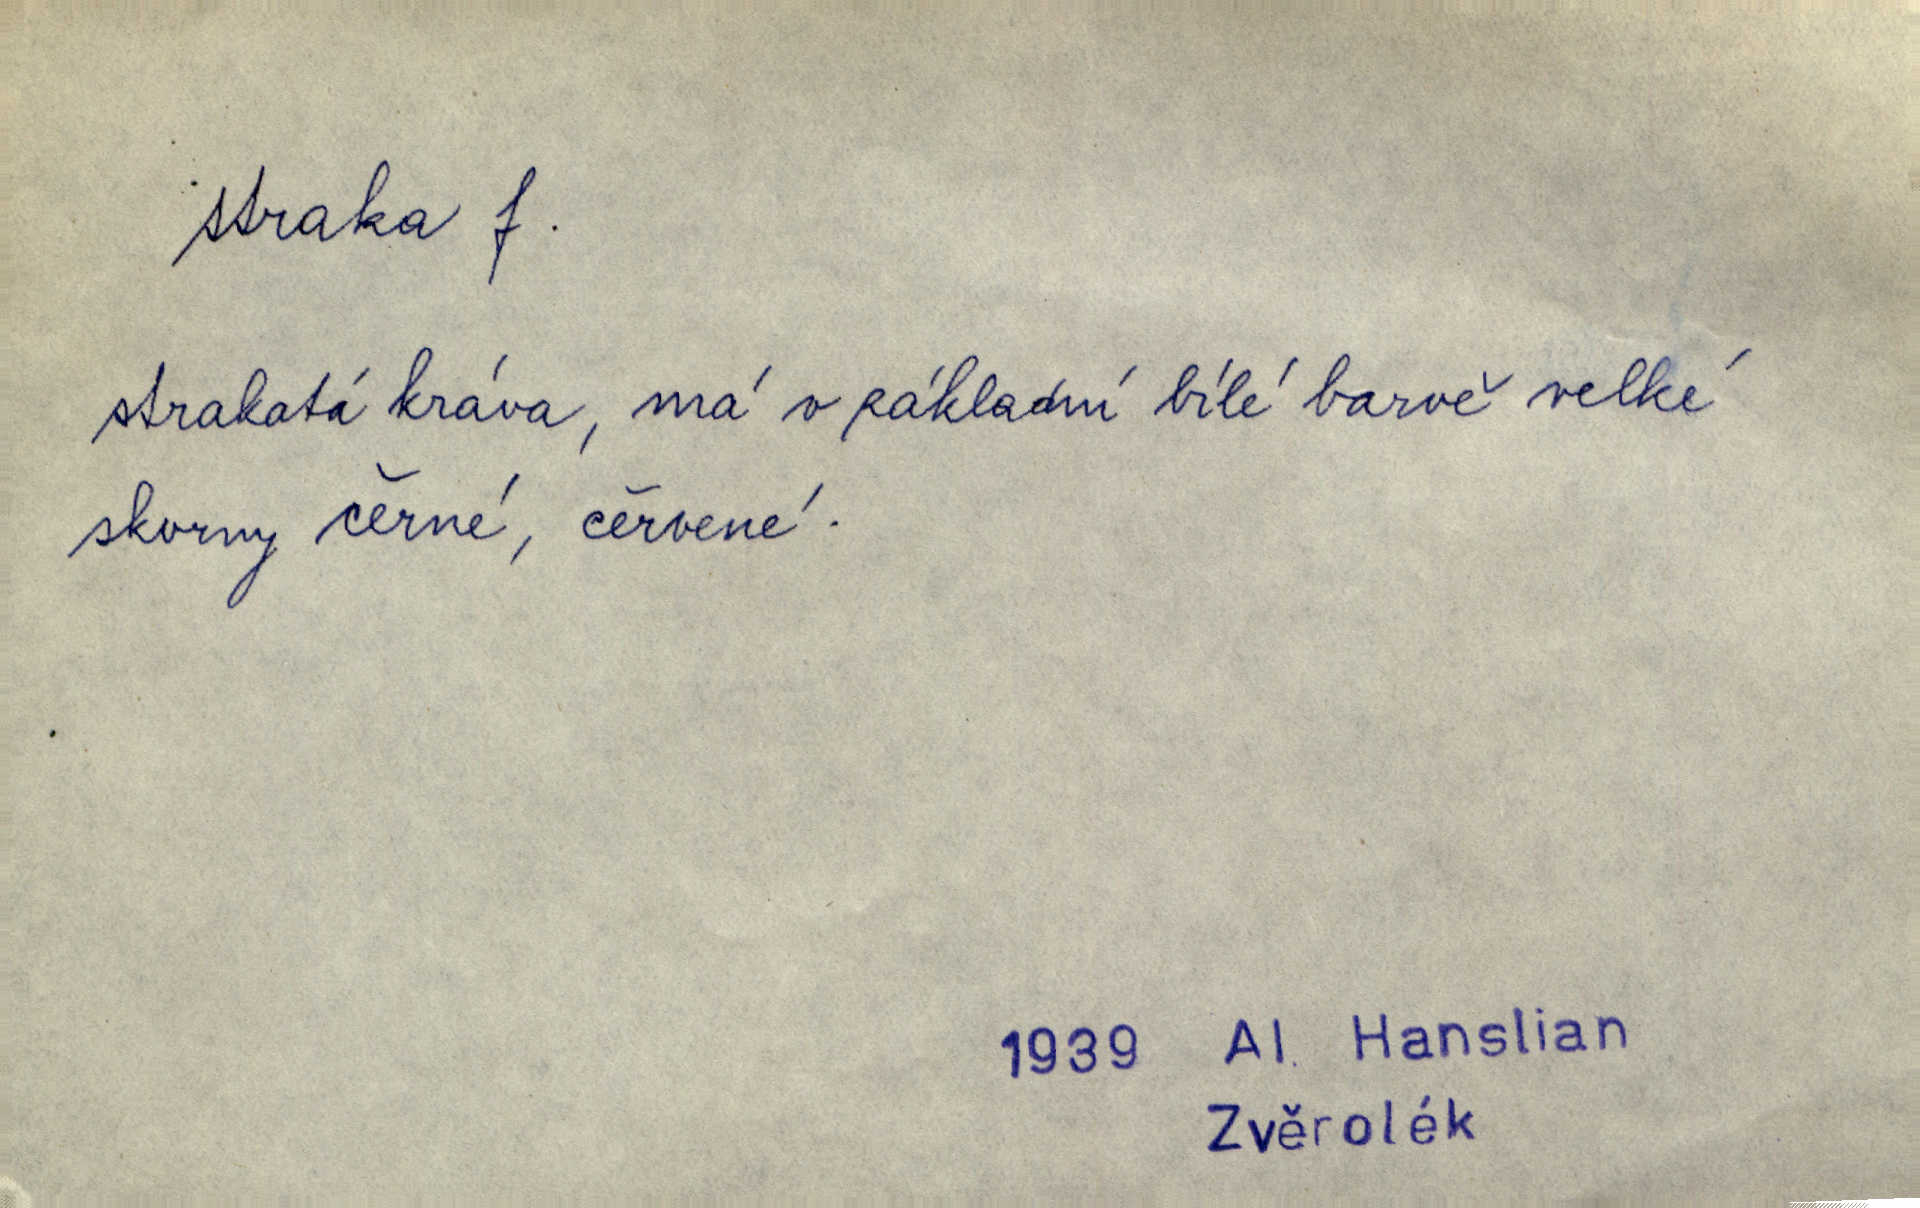 straka f.
strakatá kráva, má v základní bílé barvě velké
skvrny černé, červené.
1939 Al. Hanslian
Zvěrolék